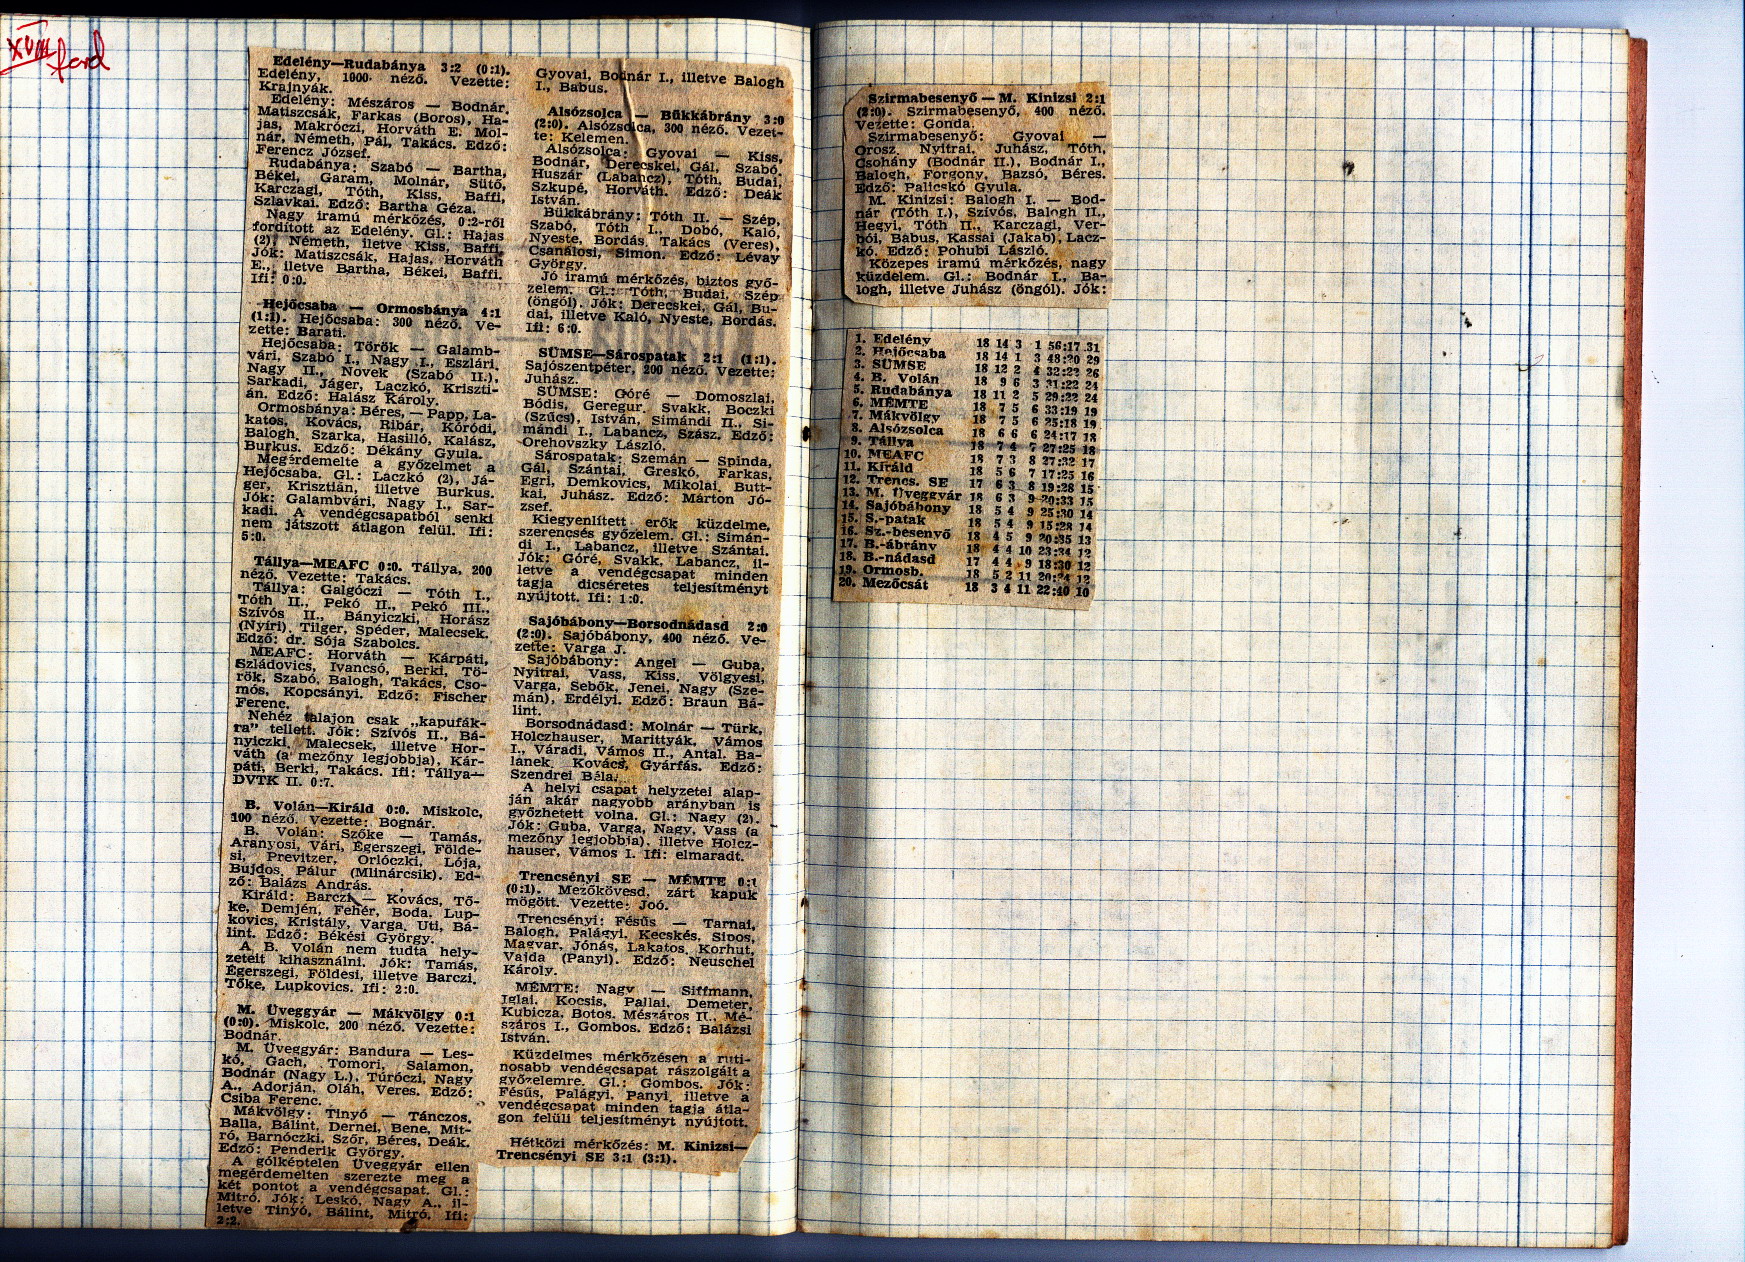 XVIII ford
Edelény—Rudabánya 3:2 (0:1).
Edelény, 1000 néző. Vezette:
Krajnyák.
Edelény: Mészáros — Bodnár,
Matiszcsák, Farkas (Boros), Ha-
jas, Makróczi, Horváth E. Mol-
nár, Németh, Pál, Takács. Edző:
Ferencz József.
Rudabánya: Szabó — Bartha,
Békei, Garam, Molnár, Sütő,
Karczagi, Tóth, Kiss, Baffi,
Szlavkai. Edző: Bartha Géza.
Nagy iramú mérkőzés, 0:2-ről
fordított az Edelény. Gl.: Hajas
(2), Németh, illetve Kiss, Baffi.
Jók: Matiszcsák, Hajas, Horváth
E., illetve Bartha, Békei, Baffi.
Ifi: 0:0.
Hejőcsaba — Ormosbánya 4:1
(1:1). Hejőcsaba: 300 néző. Ve-
zette: Baráti.
Hejőcsaba: Török — Galamb-
vári, Szabó I., Nagy I., Eszlári,
Nagy II., Novek (Szabó II.),
Sarkadi, Jáger, Laczkó, Kriszti-
án. Edző: Halász Károly.
Ormosbánya: Béres, — Papp, La-
katos, Kovács, Ribár, Kóródi,
Balogh, Szarka, Hasilló, Kalász,
Burkus. Edző: Dékány Gyula.
Megérdemelte a győzelmet a
Hejőcsaba. Gl.: Laczkó (2), Já-
ger, Krisztián, illetve Burkus.
Jók: Galambvári, Nagy I., Sar-
kadi. A vendégcsapatból senki
nem játszott átlagon felül. Ifi:
5:0.
Tállya—MEAFC 0:0. Tállya, 200
néző. Vezette: Takács.
Tállya: Galgóczi — Tóth I.,
Tóth II., Pekó II., Pekó III.,
Szívós II., Bányiczki, Horász
(Nyíri), Tilger, Spéder, Malecsek.
Edző: dr. Sója Szabolcs.
MEAFC: Horváth — Kárpáti,
Szládovics, Ivancsó, Berki, Tö-
rök, Szabó, Balogh, Takács, Cso-
mós, Kopcsányi. Edző: Fischer
Ferenc.
Nehéz talajon csak „kapufák-
ra” tellett. Jók: Szívós II., Bá-
nyiczki, Malecsek, illetve Hor-
váth (a mezőny legjobbja), Kár-
páti, Berki, Takács. Ifi: Tállya—
DVTK II. 0:7.
B. Volán—Királd 0:0. Miskolc,
100 néző. Vezette: Bognár.
B. Volán: Szőke — Tamás,
Aranyosi, Vári, Egerszegi, Földe-
si, Previtzer, Orlóczki, Lója,
Bujdos, Pálur (Mlinárcsik). Ed-
ző: Balázs András.
Királd: Barczi — Kovács, Tő-
ke, Demjén, Fehér, Boda, Lup-
kovics, Kristály, Varga, Uti, Bá-
lint. Edző: Békési György.
A B. Volán nem tudta hely-
zeteit kihasználni. Jók: Tamás,
Egerszegi, Földesi, illetve Barczi,
Tőke, Lupkovics. Ifi: 2:0.
M. Üveggyár — Mákvölgy 0:1
(0:0). Miskolc, 200 néző. Vezette:
Bodnár.
M. Üveggyár: Bandura — Les-
kó, Gach, Tomori, Salamon,
Bodnár (Nagy L.), Túróczi, Nagy
A., Adorján, Oláh, Veres. Edző:
Csiba Ferenc.
Mákvölgy: Tinyó — Tánczos,
Balla, Bálint, Dernei, Bene, Mit-
ró, Barnóczki, Szőr, Béres, Deák.
Edző: Penderik György.
A gólképtelen Üveggyár ellen
megérdemelten szerezte meg a
két pontot a vendégcsapat. Gl.:
Mitró. Jók: Leskó, Nagy A., il-
letve Tinyó, Bálint, Mitró. Ifi:
2:2.
Gyovai, Bodnár I., illetve Balogh
I., Babus.
Alsózsolca — Bükkábrány 3:0
(2:0). Alsózsolca, 300 néző. Vezet-
te: Kelemen.
Alsózsolca: Gyovai — Kiss,
Bodnár, Derecskei, Gál, Szabó,
Huszár (Labancz), Tóth, Budai,
Szkupé, Horváth. Edző: Deák
István.
Bükkábrány: Tóth II. — Szép,
Szabó, Tóth I., Dobó, Kaló,
Nyeste, Bordás, Takács (Veres),
Csanálosi, Simon. Edző: Lévay
György.
Jó iramú mérkőzés, biztos győ-
zelem. Gl.: Tóth, Budai, Szép
(öngól). Jók: Derecskei, Gál, Bu-
dai, illetve Kaló, Nyeste, Bordás.
Ifi: 6:0.
SÜMSE—Sárospatak 2:1 (1:1).
Sajószentpéter, 200 néző. Vezette:
Juhász.
SÜMSE: Góré — Domoszlai,
Bódis, Geregur, Svakk, Boczki
(Szűcs), István, Simándi II., Si-
mándi I., Labancz, Szász. Edző:
Orehovszky László.
Sárospatak: Szemán — Spinda,
Gál, Szántai, Greskó, Farkas,
Egri, Demkovics, Mikolai, Butt-
kai, Juhász. Edző: Márton Jó-
zsef.
Kiegyenlített erők küzdelme,
szerencsés győzelem. Gl.: Simán-
di I., Labancz, illetve Szántai.
Jók: Góré, Svakk, Labancz, il-
letve a vendégcsapat minden
tagja dicséretes teljesítményt
nyújtott. Ifi: 1:0.
Sajóbábony—Borsodnádasd 2:0
(2:0). Sajóbábony, 400 néző. Ve-
zette: Varga J.
Sajóbábony: Angel — Guba,
Nyitrai, Vass, Kiss, Völgyesi,
Varga, Sebők, Jenei, Nagy (Sze-
mán), Erdélyi. Edző: Braun Bá-
lint.
Borsodnádasd: Molnár — Türk,
Holczhauser, Marittyák, Vámos
I., Váradi, Vámos II., Antal, Ba-
lánek, Kovács, Gyárfás. Edző:
Szendrei Béla.
A helyi csapat helyzetei alap-
ján akár nagyobb arányban is
győzhetett volna. Gl.: Nagy (2).
Jók: Guba, Varga, Nagy, Vass (a
mezőny legjobbja), illetve Holcz-
hauser, Vámos I. Ifi: elmaradt.
Trencsényi SE — MÉMTE 0:1
(0:1). Mezőkövesd, zárt kapuk
mögött. Vezette: Joó.
Trencsényi: Fésűs — Tarnai,
Balogh, Palágyi, Kecskés, Sipos,
Magyar, Jónás, Lakatos, Korhut,
Vajda (Panyi). Edző: Neuschel
Károly.
MÉMTE: Nagy — Siffmann,
Iglai, Kocsis, Pallai, Demeter,
Kubicza, Botos, Mészáros II., Mé-
száros I., Gombos. Edző: Balázsi
István.
Küzdelmes mérkőzésen a ruti-
nosabb vendégcsapat rászolgált a
győzelemre. Gl.: Gombos. Jók:
Fésűs, Palágyi, Panyi, illetve a
vendégcsapat minden tagja átla-
gon felüli teljesítményt nyújtott.
Hétközi mérkőzés: M. Kinizsi—
Trencsényi SE 3:1 (3:1).
Szirmabesenyő — M. Kinizsi 2:1
(2:0). Szirmabesenyő, 400 néző.
Vezette: Gonda.
Szirmabesenyő: Gyovai —
Orosz, Nyitrai, Juhász, Tóth,
Csohány (Bodnár II.), Bodnár I.,
Balogh, Forgony, Bazsó, Béres.
Edző: Palicskó Gyula.
M. Kinizsi: Balogh I. — Bod-
nár (Tóth I.), Szívós, Balogh II.,
Hegyi, Tóth II., Karczagi, Ver-
bói, Babus, Kassai (Jakab), Lacz-
kó. Edző: Pohubi László.
Közepes iramú mérkőzés, nagy
küzdelem. Gl.: Bodnár I., Ba-
logh, illetve Juhász (öngól). Jók:
1. Edelény 18 14 3 1 56:17 31
2. Hejőcsaba 18 14 1 3 48:20 29
3. SÜMSE 18 12 2 4 32:22 26
4. B. Volán 18 9 6 3 31:22 24
5. Rudabánya 18 11 2 5 29:22 24
6. MÉMTE 18 7 5 6 33:19 19
7. Mákvölgy 18 7 5 6 25:18 19
8. Alsózsolca 18 6 6 6 24:17 18
9. Tállya 18 7 4 7 27:25 18
10. MEAFC 18 7 3 8 27:32 17
11. Királd 18 5 6 7 17:25 16
12. Trencs. SE 17 6 3 8 19:28 15
13. M. Üveggyár 18 6 3 9 20:33 15
14. Sajóbábony 18 5 4 9 25:30 14
15. S.-patak 18 5 4 9 15:28 14
16. Sz.-besenyő 18 4 5 9 20:35 13
17. B.-ábrány 18 4 4 10 23:34 12
18. B.-nádasd 17 4 4 9 18:30 12
19. Ormosb. 18 5 2 11 12
20. Mezőcsát 18 3 4 11 22:40 10